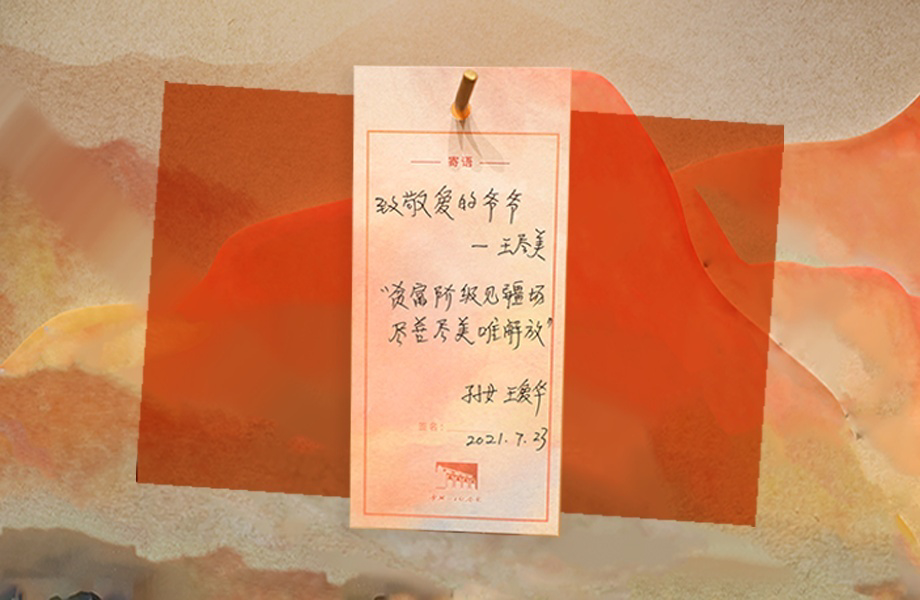 寄语
致敬爱的爷爷
— 王尽美
“贫富阶级见疆场
尽善尽美唯解放”
孙女 王爱华
签名：
2021.7.23